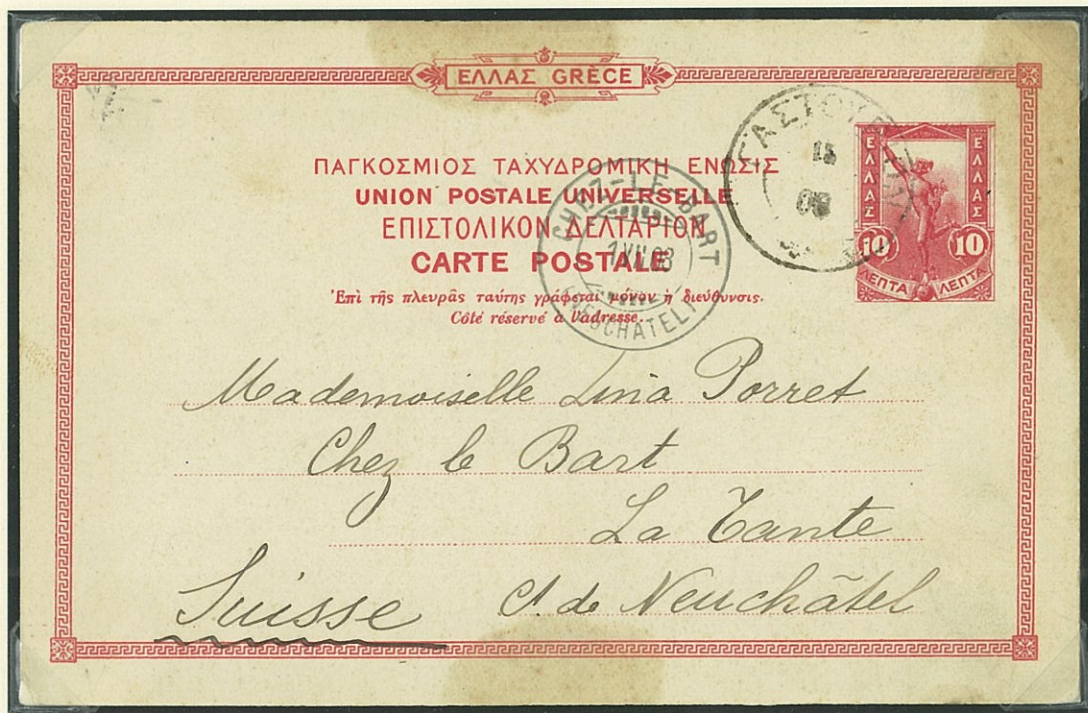 ΕΛΛΑΣ GRÈCE
ΠΑΓΚΟΣΜΙΟΣ ΤΑΧΥΔΡΟΜΙΚΗ ΕΝΩΣΙΣ
UNION POSTALE UNIVERSELLE
ΕΠΙΣΤΟΛΙΚΟΝ ΔΕΛΤΑΡΙΟΝ
CARTE POSTALE
Ἐπὶ τῆς πλευρᾶς ταύτης γράφεται μόνον ἡ διεύθυνσις.
Côté réservé à l'adresse.
ΕΛΛΑΣ ΕΛΛΑΣ
10 10
ΛΕΠΤΑ ΛΕΠΤΑ
CHEZ-LE-BART
(NEUCHÂTEL)
Mademoiselle Lina Porret
Chez le Bart
La Tante
Suisse Ct. de Neuchâtel